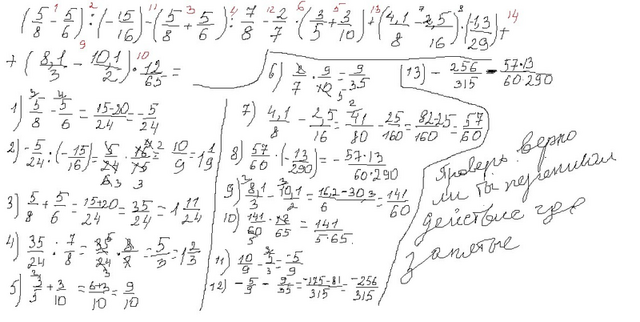 (5/8 - 5/6) : (-15/16) - (5/8 + 5/6) : 7/8 - 2/7 · (3/5 + 3/10) + (4,1/8 - 2,5/16) · (-13/29) +
+ (8,1/3 - 10,1/2) · 12/65 =
1) 5/8 - 5/6 = 15-20/24 = -5/24
2) -5/24 : (-15/16) = 5/24 · 16/15 = 10/9 = 1 1/9
3) 5/8 + 5/6 = 15+20/24 = 35/24 = 1 11/24
4) 35/24 : 7/8 = 35/24 · 8/7 = 5/3 = 1 2/3
5) 3/5 + 3/10 = 6+3/10 = 9/10
6) 2/7 · 9/10 = 9/35
7) 4,1/8 - 2,5/16 = 41/80 - 25/160 = 82-25/160 = 57/60
8) 57/60 · (-13/290) = -57·13/60·290
9) 8,1/3 - 10,1/2 = 16,2-30,3/6 = 141/60
10) 141/60 · 12/65 = 141/5·65.
11) 10/9 - 5/3 = -5/9
12) -5/9 - 9/35 = -175-81/315 = -256/315
13) - 256/315 - 57·13/60·290
Проверь верно
ли ты переписал
действие где
запятые